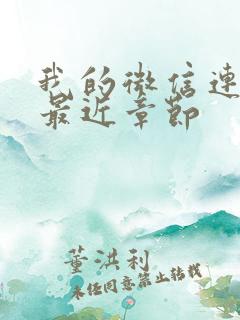 我的微信连
最近章节
董洪利
未经同意禁止转载